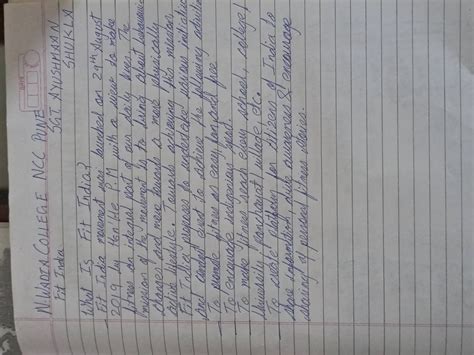 N. WADIA COLLEGE NCC PUNE
SGT AYUSHMAAN
SHUKLA
Fit India
What Is Fit India?
Fit India movement was launched on 29th August
2019 by Hon'ble P.M with a view to make
fitness an integral part of our daily lives. The
mission of the movement is to bring about behavioural
changes and move towards a more physically
active lifestyle. Towards achieving this mission,
Fit India proposes to undertake various initiatives
and conduct event to achieve the following objectives
To promote fitness as easy, fun and free
To encourage indigenous sport.
To make fitness reach every school, college/
University, panchayat/village, etc.
To create platform for citizens of India to
share information, drive awareness & encourage
sharing of personal fitness stories.